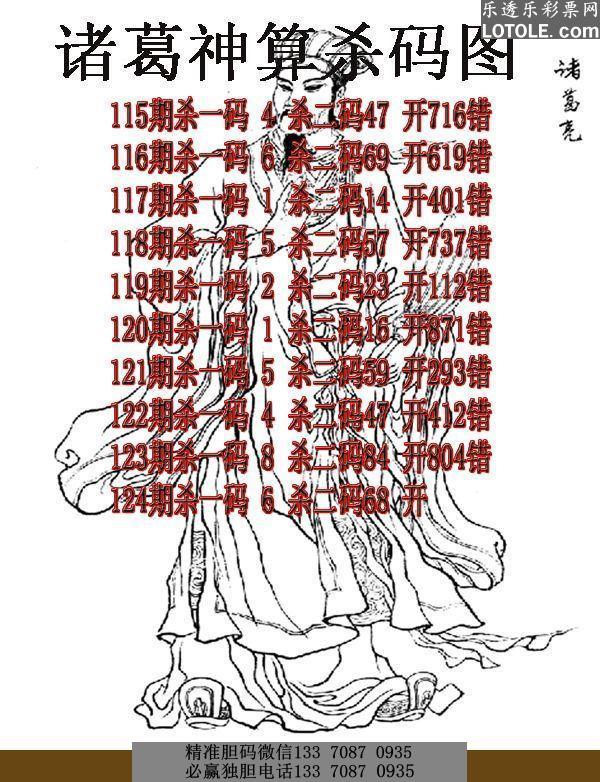 乐透乐彩票网
LOTOLE.COM
诸葛神算杀码图
诸葛亮
115期杀一码 4 杀二码47 开716错
116期杀一码 6 杀二码69 开619错
117期杀一码 1 杀二码14 开401错
118期杀一码 5 杀二码57 开737错
119期杀一码 2 杀二码23 开112错
120期杀一码 1 杀二码16 开871错
121期杀一码 5 杀二码59 开293错
122期杀一码 4 杀二码47 开412错
123期杀一码 8 杀二码84 开804错
124期杀一码 6 杀二码68 开
精准胆码微信133 7087 0935
必赢独胆电话133 7087 0935